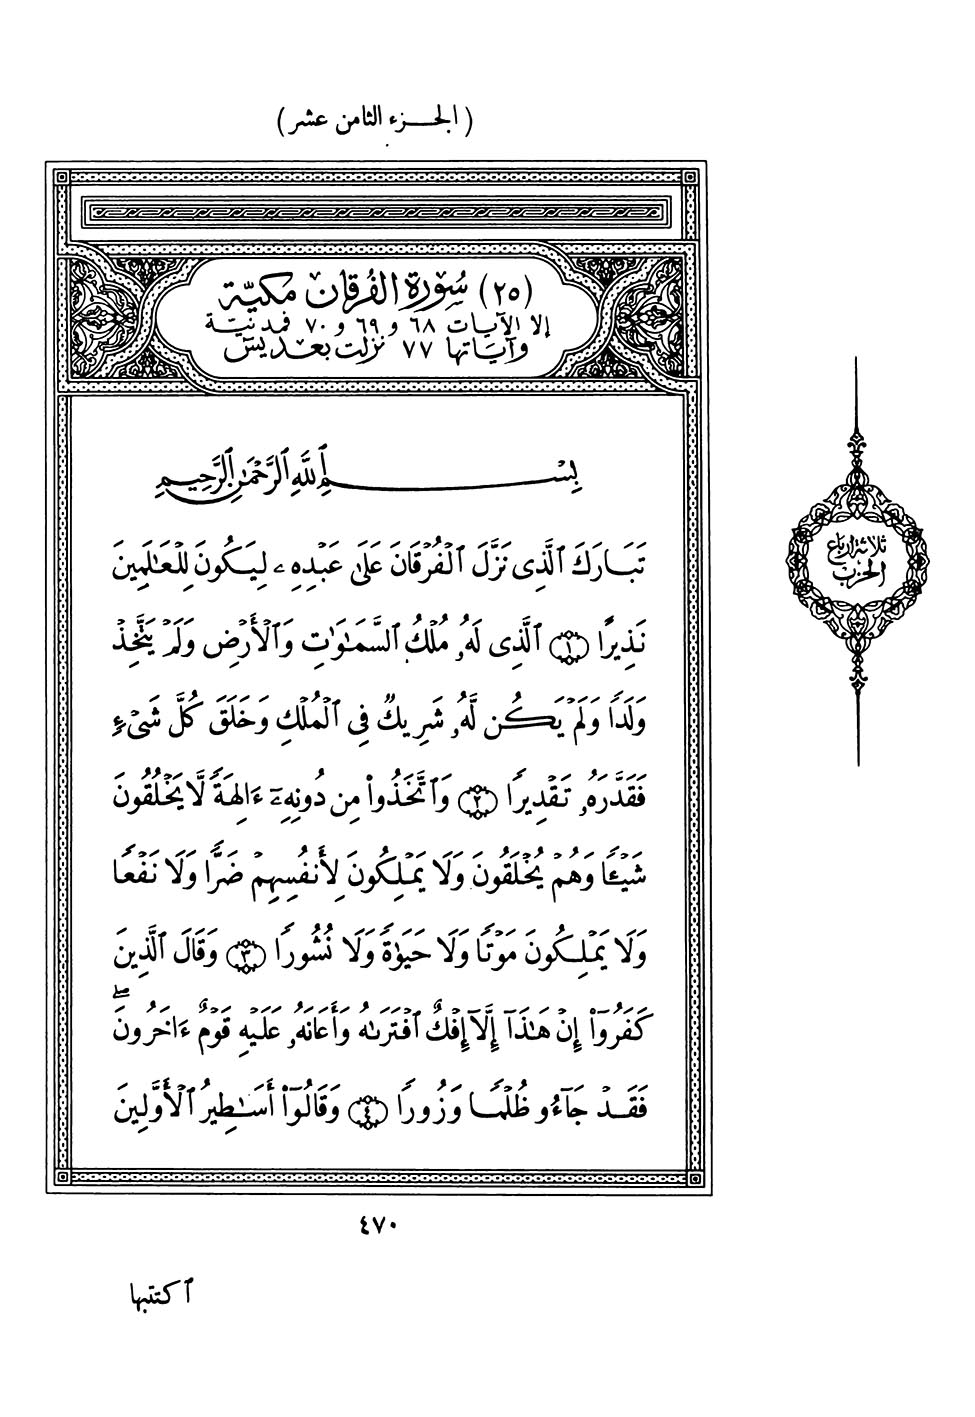 (الجزء الثامن عشر)
(٢٥) سُورَةُ الفُرقَانِ مَكيّة
إلا الآيات ٦٨ و ٦٩ و ٧٠ فمدنيّة
وآيَاتها ٧٧ نزلت بعد يسٓ
بِسْمِ ٱللَّهِ ٱلرَّحْمَٰنِ ٱلرَّحِيمِ
تَبَارَكَ ٱلَّذِى نَزَّلَ ٱلْفُرْقَانَ عَلَىٰ عَبْدِهِۦ لِيَكُونَ لِلْعَٰلَمِينَ
نَذِيرًا ۝١ ٱلَّذِى لَهُۥ مُلْكُ ٱلسَّمَٰوَٰتِ وَٱلْأَرْضِ وَلَمْ يَتَّخِذْ
وَلَدًا وَلَمْ يَكُن لَّهُۥ شَرِيكٌ فِى ٱلْمُلْكِ وَخَلَقَ كُلَّ شَىْءٍ
فَقَدَّرَهُۥ تَقْدِيرًا ۝٢ وَٱتَّخَذُوا۟ مِن دُونِهِۦٓ ءَالِهَةً لَّا يَخْلُقُونَ
شَيْـًٔا وَهُمْ يُخْلَقُونَ وَلَا يَمْلِكُونَ لِأَنفُسِهِمْ ضَرًّا وَلَا نَفْعًا
وَلَا يَمْلِكُونَ مَوْتًا وَلَا حَيَوٰةً وَلَا نُشُورًا ۝٣ وَقَالَ ٱلَّذِينَ
كَفَرُوٓا۟ إِنْ هَٰذَآ إِلَّآ إِفْكٌ ٱفْتَرَىٰهُ وَأَعَانَهُۥ عَلَيْهِ قَوْمٌ ءَاخَرُونَۖ
فَقَدْ جَآءُو ظُلْمًا وَزُورًا ۝٤ وَقَالُوٓا۟ أَسَٰطِيرُ ٱلْأَوَّلِينَ
ثلاثة أرباع
الحزب
٤٧٠
ٱكتتبها